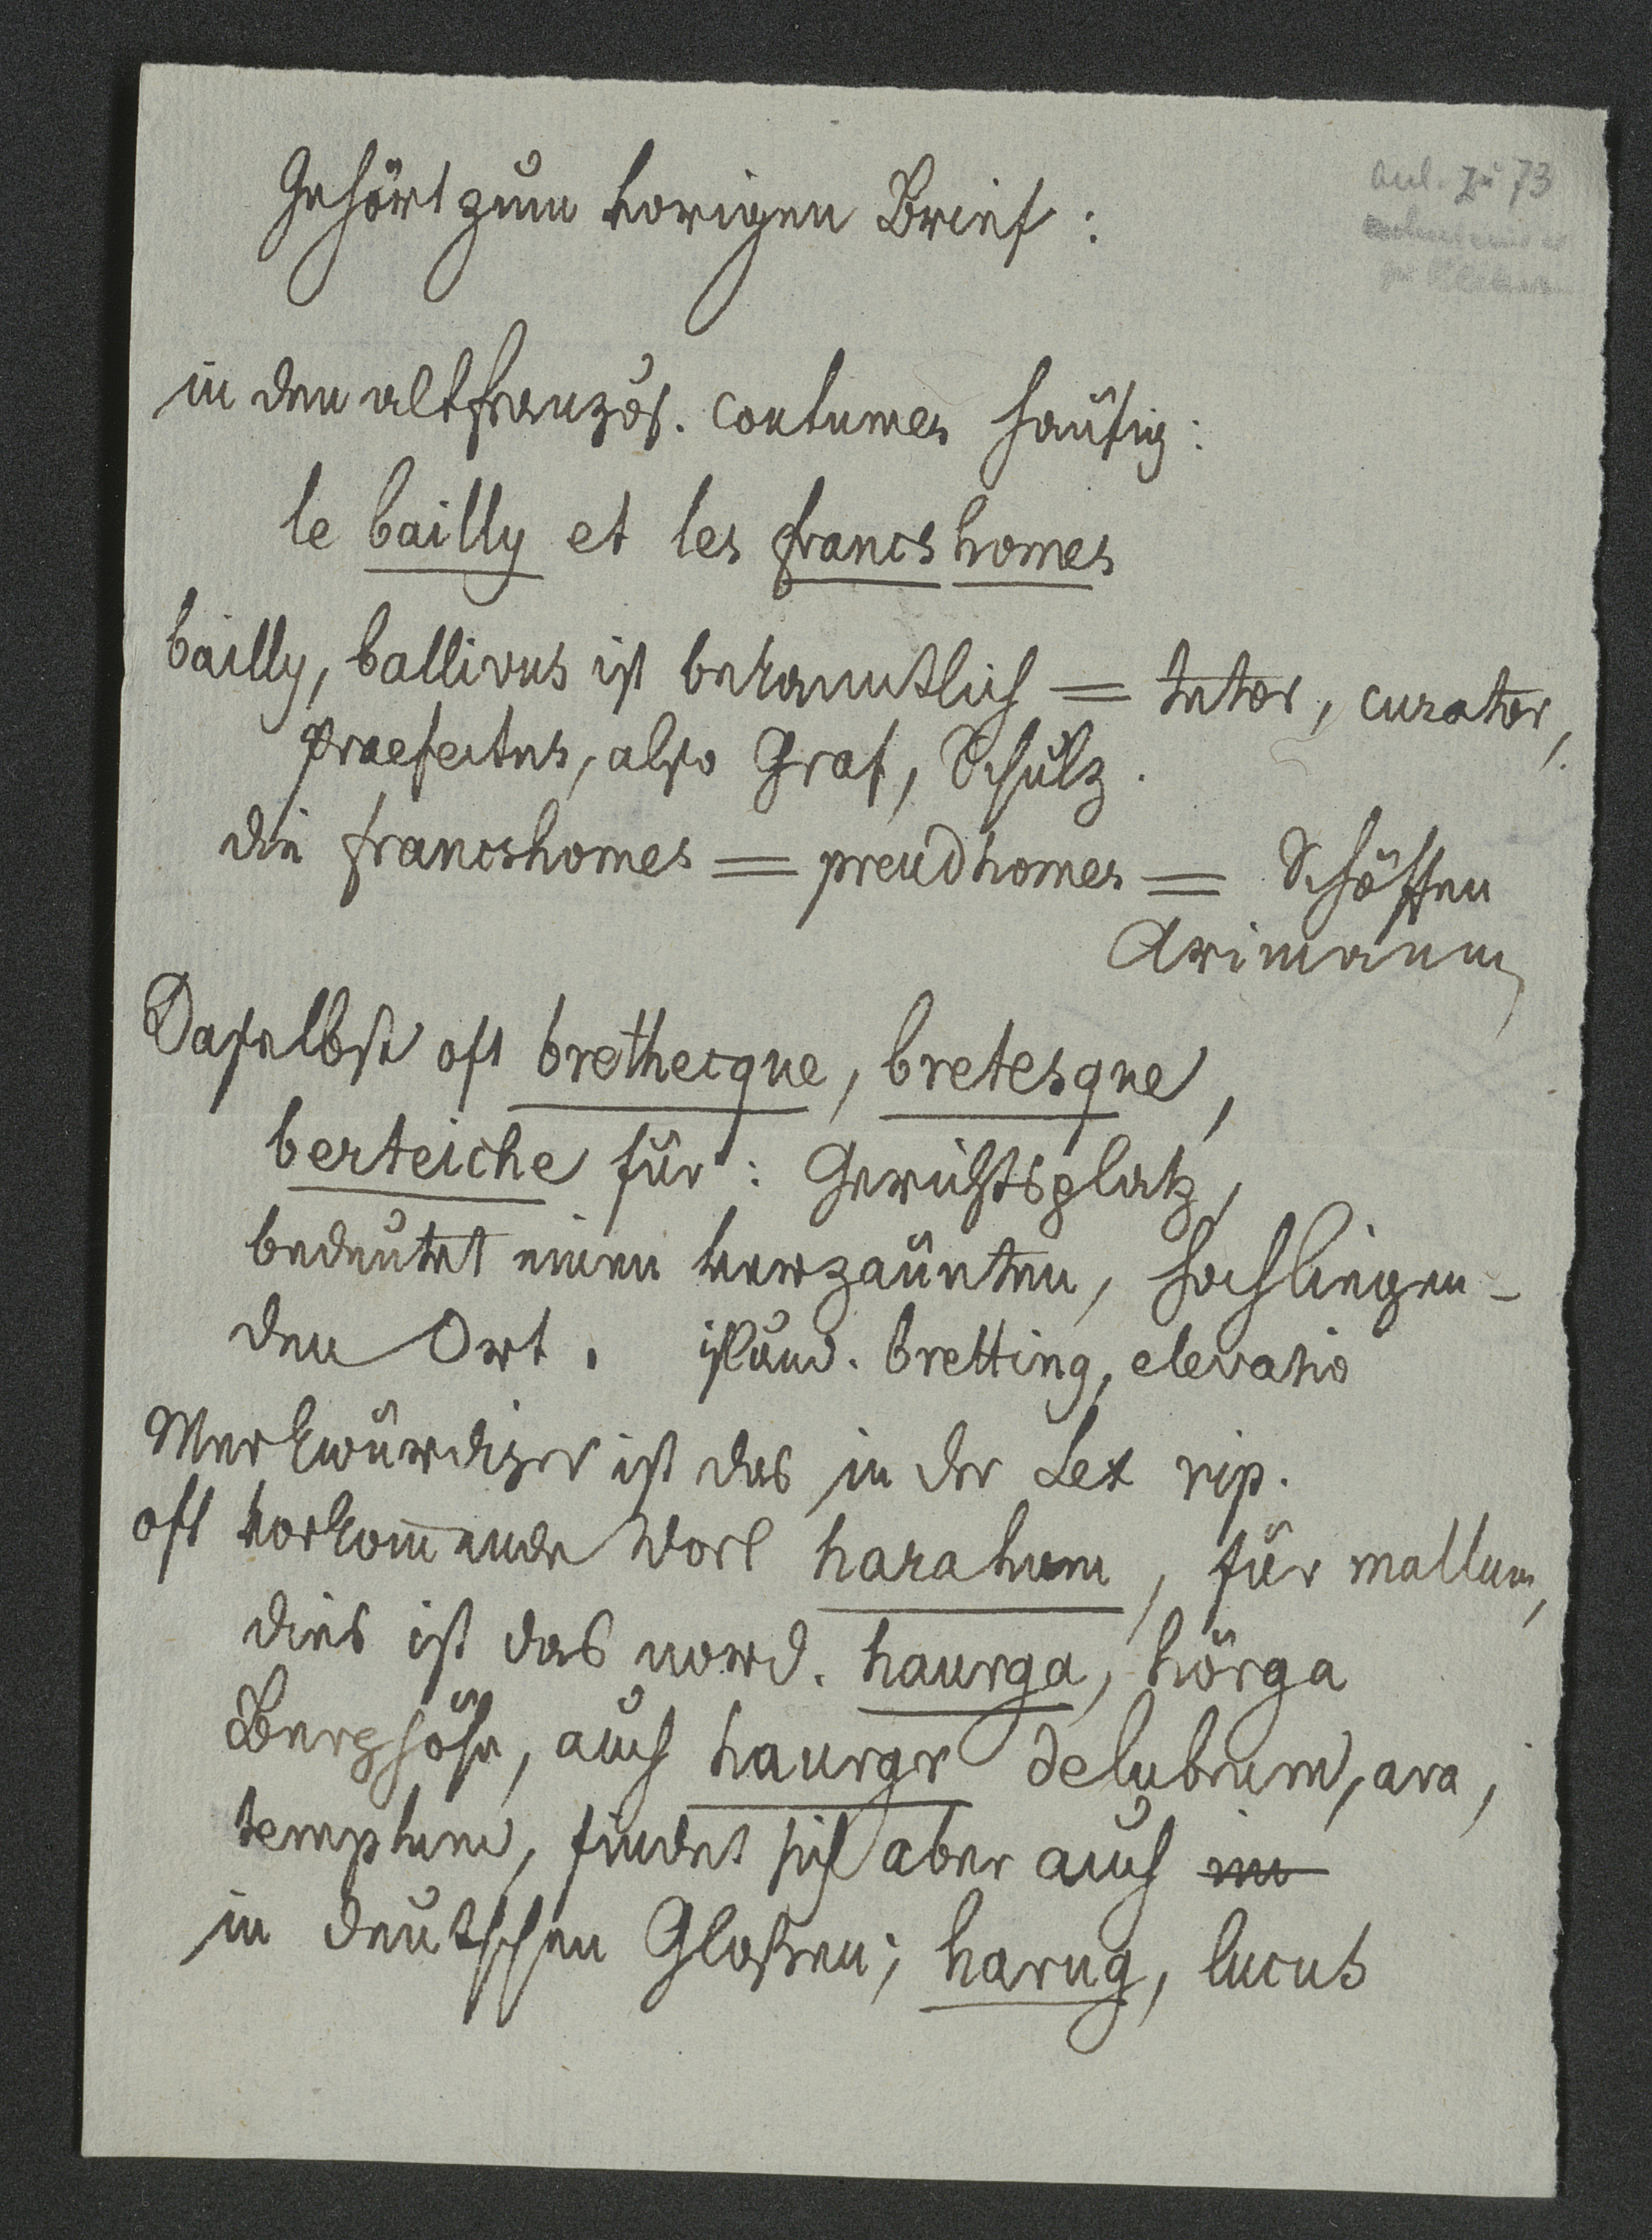 Gehört zum vorigen Brief:
zu 73
in den altfranzös. coutumes häufig:
le bailly et les francs homes
bailly, ballivus ist bekanntlich = tutor, curator,
praefectus, also Graf, Schulz.
die francshomes = preudhomes = Schöffen
Arimann
Daselbst oft brethecque, bretesque,
berteiche für: Gerichtsplatz,
bedeutet einen verzäunten, hochliegen-
den Ort. isländ. bretting, elevatio
Merkwürdiger ist das in der Lex rip.
oft vorkom̅ende Wort harahum, für mallum,
dies ist das nord. haurga, hörga
Berghöhe, auch haurgr delubrum, ara,
templum, findet sich aber auch im
in deutschen Gloßen; harug, lucus